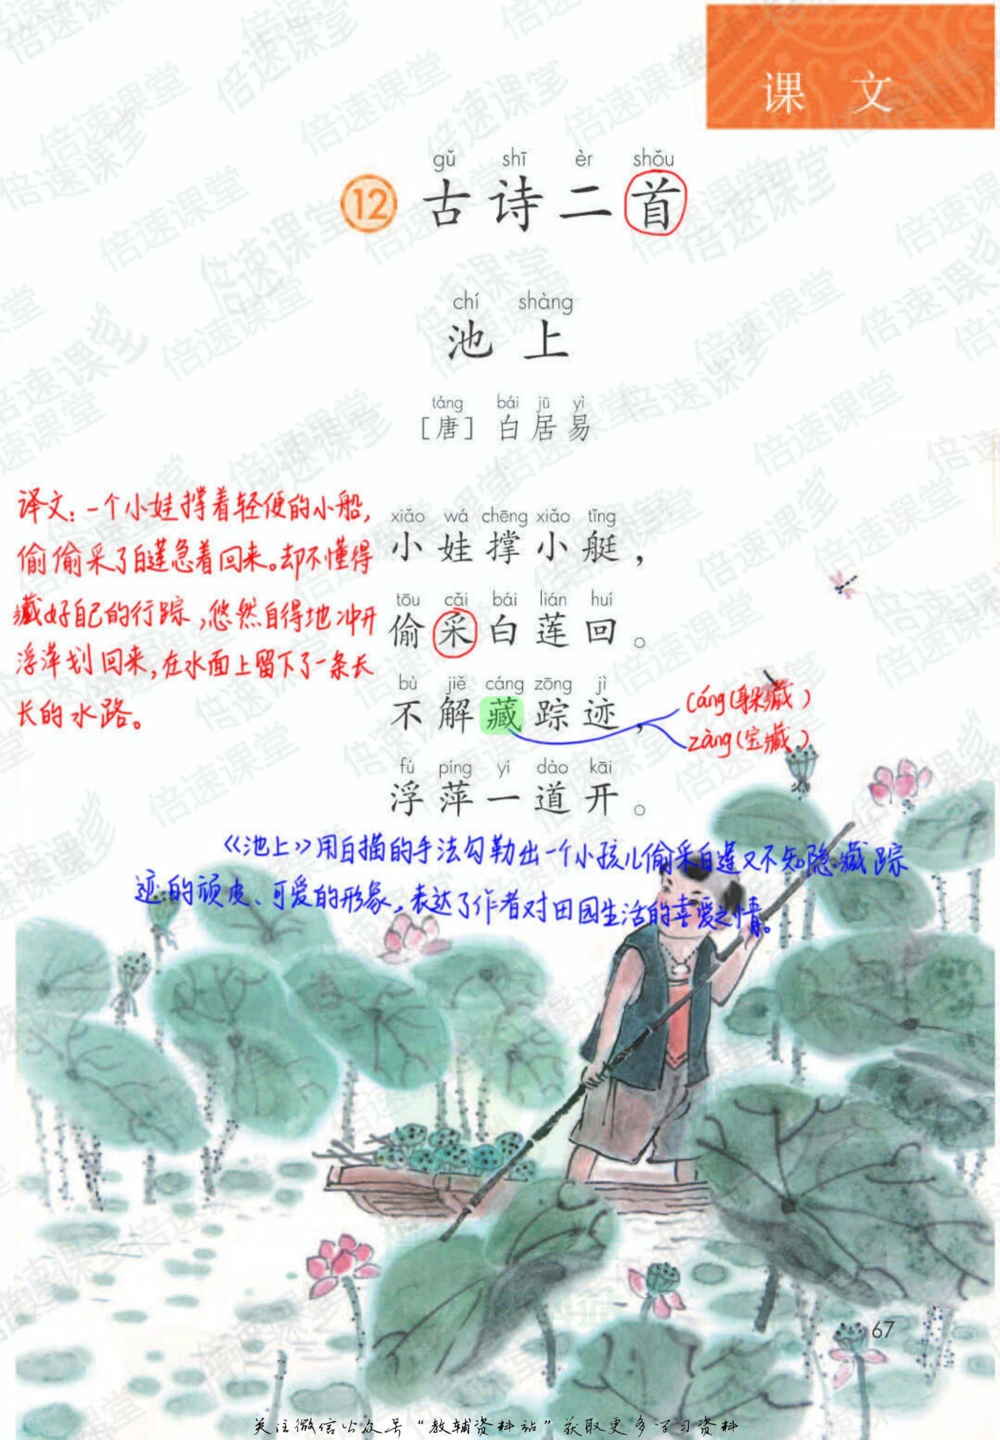 课 文
gǔ shī èr shǒu
12 古诗二首
chí shàng
池 上
táng bái jū yì
［唐］ 白居易
译文：一个小娃撑着轻便的小船，
偷偷采了白莲急着回来。却不懂得
藏好自己的行踪，悠然自得地冲开
浮萍划回来，在水面上留下了一条长
长的水路。
xiǎo wá chēng xiǎo tǐng
小娃撑小艇，
tōu cǎi bái lián huí
偷采白莲回。
bù jiě cáng zōng jì
不解藏踪迹，
cáng（躲藏）
zàng（宝藏）
fú píng yí dào kāi
浮萍一道开。
《池上》用白描的手法勾勒出一个小孩儿偷采白莲又不知隐藏踪
迹的顽皮、可爱的形象，表达了作者对田园生活的喜爱之情。
67
关注微信公众号“教辅资料站”获取更多学习资料
倍速课堂